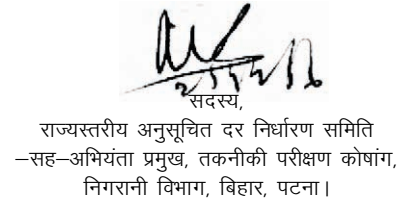 सदस्य,
राज्यस्तरीय अनुसूचित दर निर्धारण समिति
–सह–अभियंता प्रमुख, तकनीकी परीक्षण कोषांग,
निगरानी विभाग, बिहार, पटना।